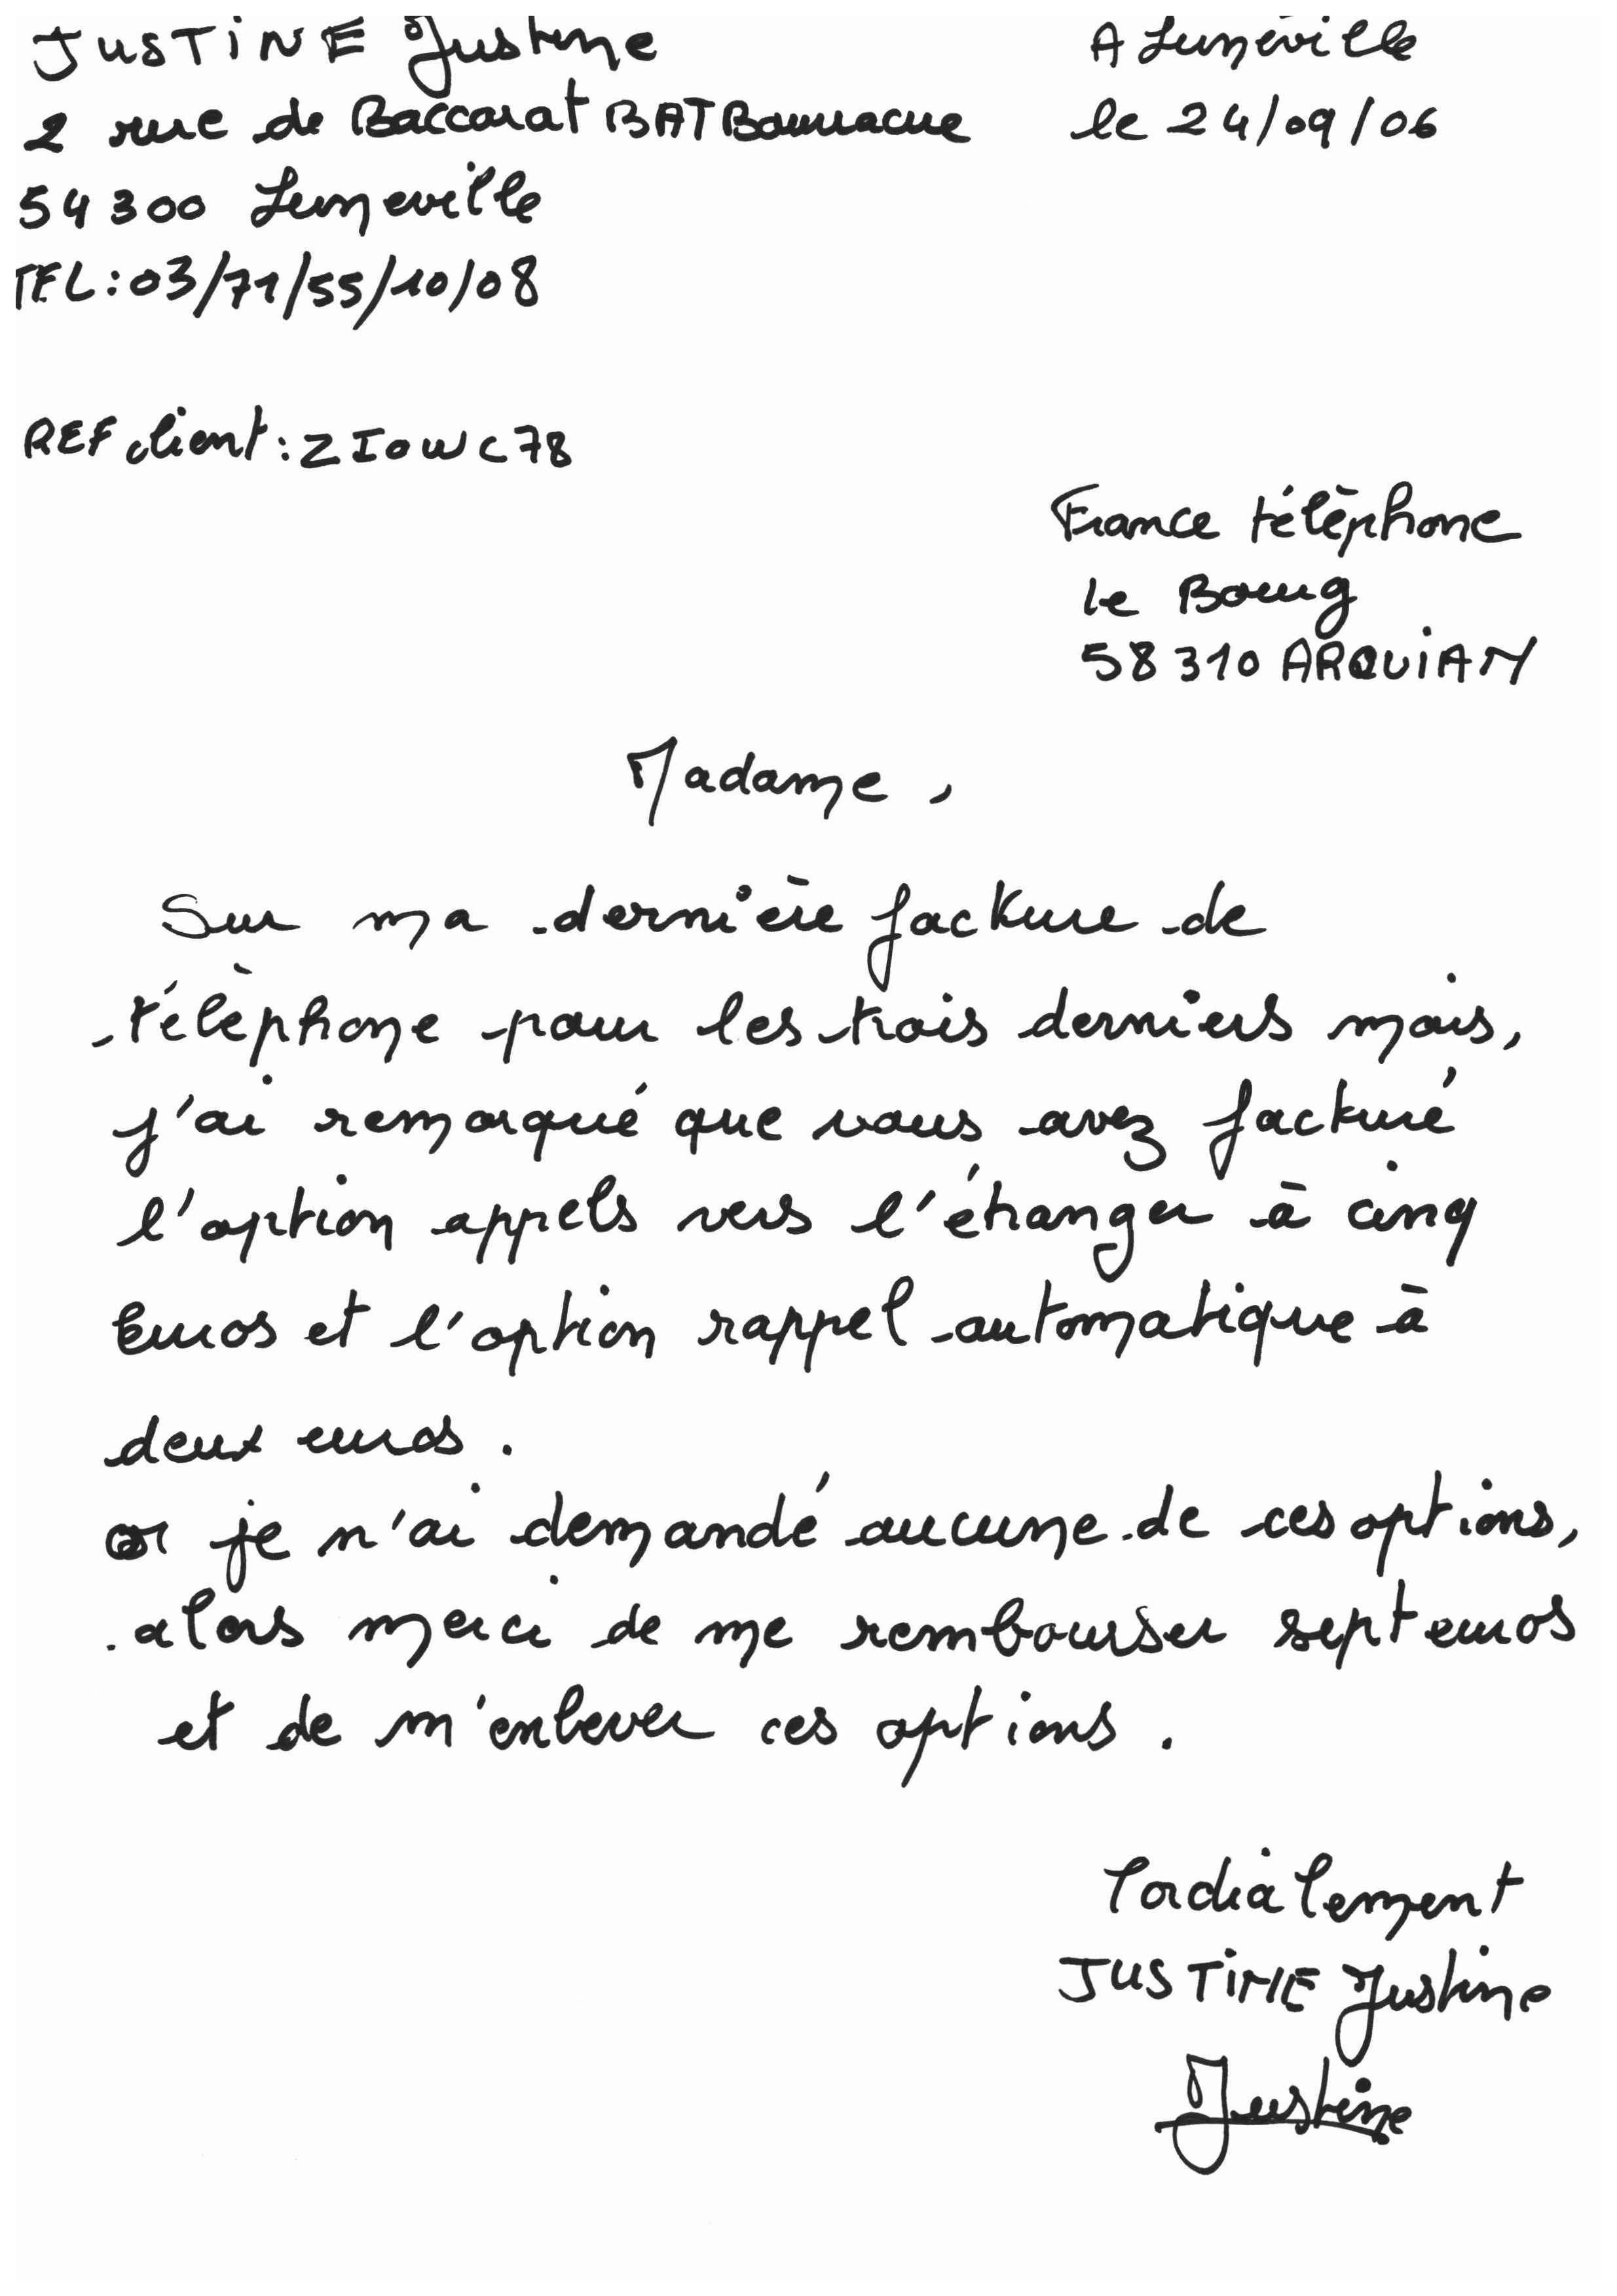 JUSTINE Justine
A Lunéville
2 rue de Baccarat BAT Bournacue
le 24/09/06
54300 Luneville
TEL : 03/71/55/10/08
REF client : ZIOWC78
France téléphone
le Bourg
58310 ARQUIAN
Madame,
Sur ma dernière facture de
téléphone pour les trois derniers mois,
j'ai remarqué que vous avez facturé
l'option appels vers l'étranger à cinq
Euros et l'option rappel automatique à
deux euros.
or je n'ai demandé aucune de ces options,
alors merci de me rembourser sept euros
et de m'enlever ces options.
Cordialement
JUSTINE Justine
Justine